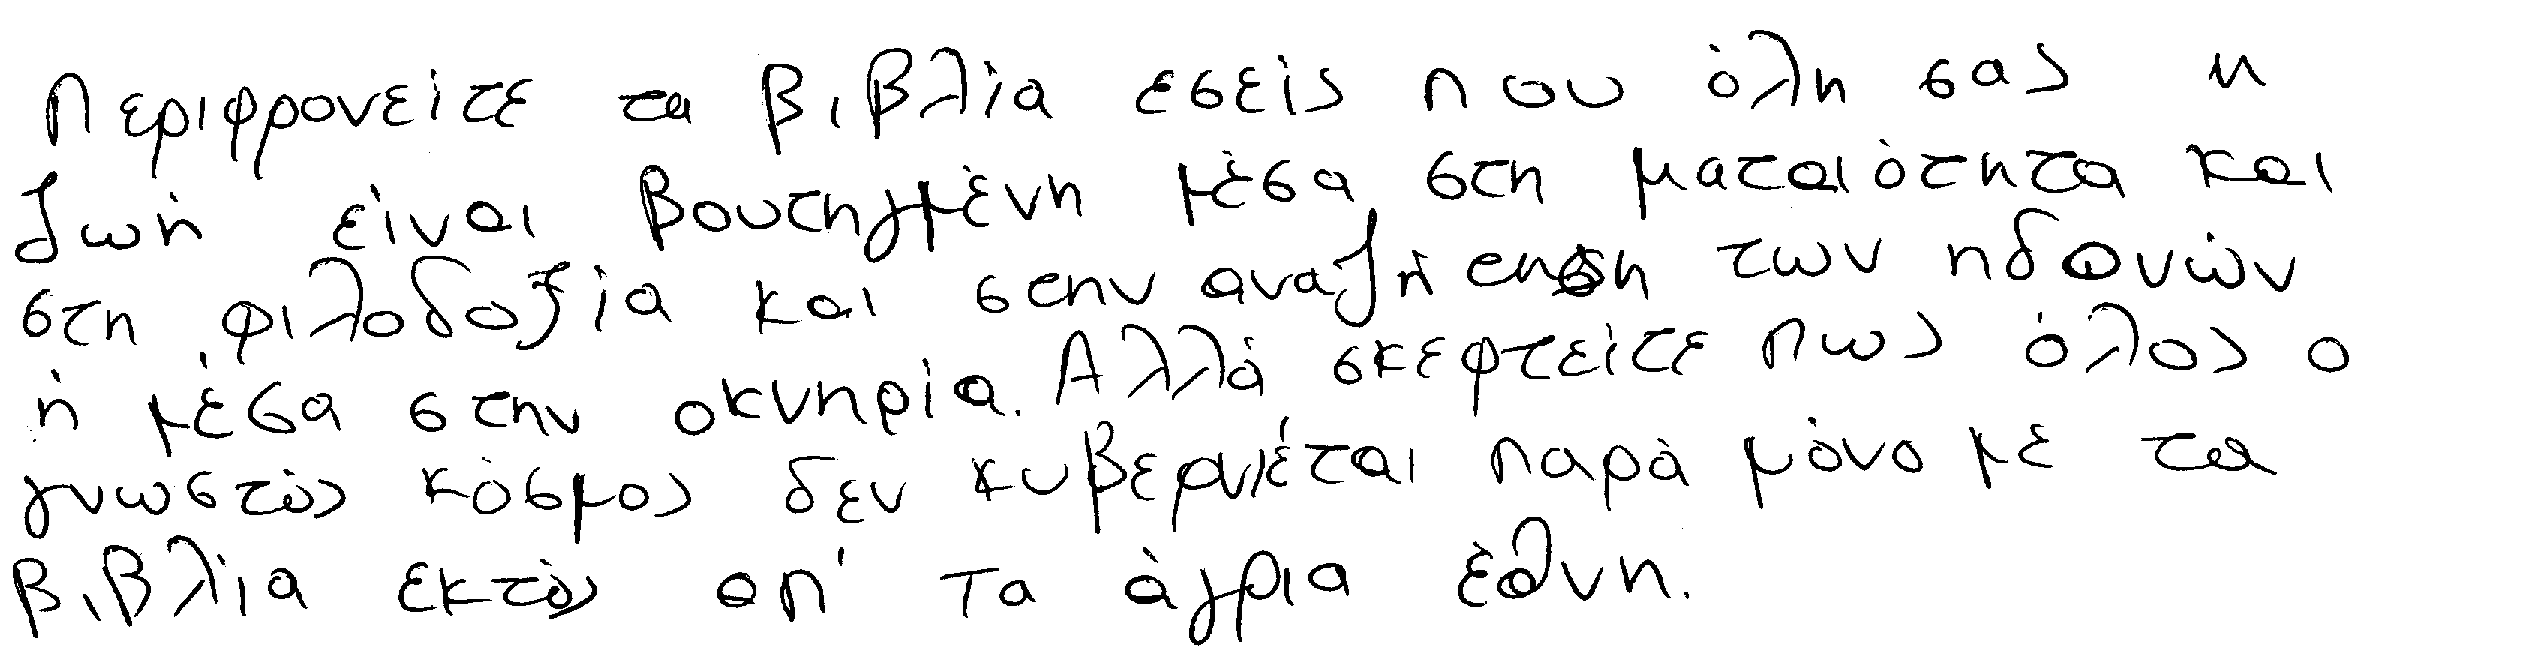 Περιφρονείτε τα βιβλία εσείς που όλη σας η
ζωή είναι βουτηγμένη μέσα στη ματαιότητα και
στη φιλοδοξία και στην αναζήτηση των ηδονών
ή μέσα στην οκνηρία. Αλλά σκεφτείτε πως όλος ο
γνωστός κόσμος δεν κυβερνιέται παρά μόνο με τα
βιβλία εκτός απ' τα άγρια έθνη.